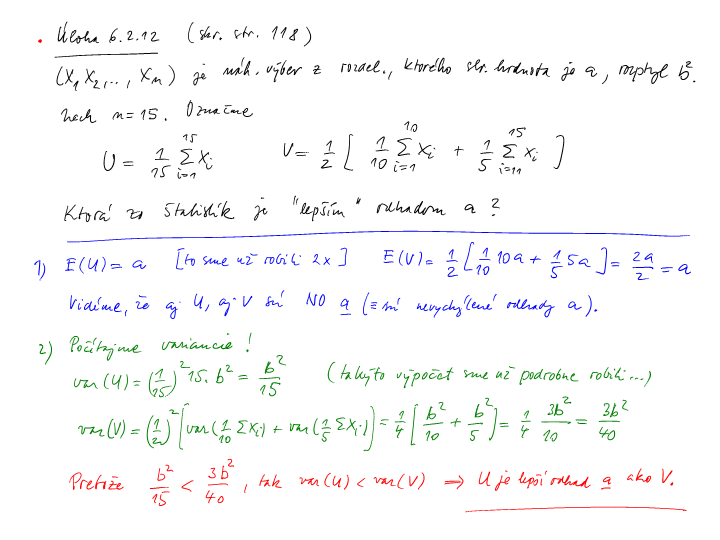 • Úloha 6.2.12 (skr. str. 118)
(X₁ X₂,.., Xₙ) je náh. výber z rozdel., ktorého str. hodnota je a, rozptyl b².
Nech n=15. Označme
U = 1/15 ∑_{i=1}^{15} Xᵢ V = 1/2 [ 1/10 ∑_{i=1}^{10} Xᵢ + 1/5 ∑_{i=11}^{15} Xᵢ ]
Ktorá zo štatistík je "lepším" odhadom a?
1) E(U) = a [to sme už robili 2x] E(V) = 1/2 [1/10 10a + 1/5 5a] = 2a/2 = a
Vidíme, že aj U, aj V sú NO a (≡ sú nevychýlené odhady a).
2) Počítajme variancie!
var(U) = (1/15)² 15. b² = b²/15 (takýto výpočet sme už podrobne robili...)
var(V) = (1/2)² [var(1/10 ∑Xᵢ) + var(1/5 ∑Xᵢ)] = 1/4 [b²/10 + b²/5] = 1/4 3b²/10 = 3b²/40
Pretože b²/15 < 3b²/40, tak var(U) < var(V) ⇒ U je lepší odhad a ako V.